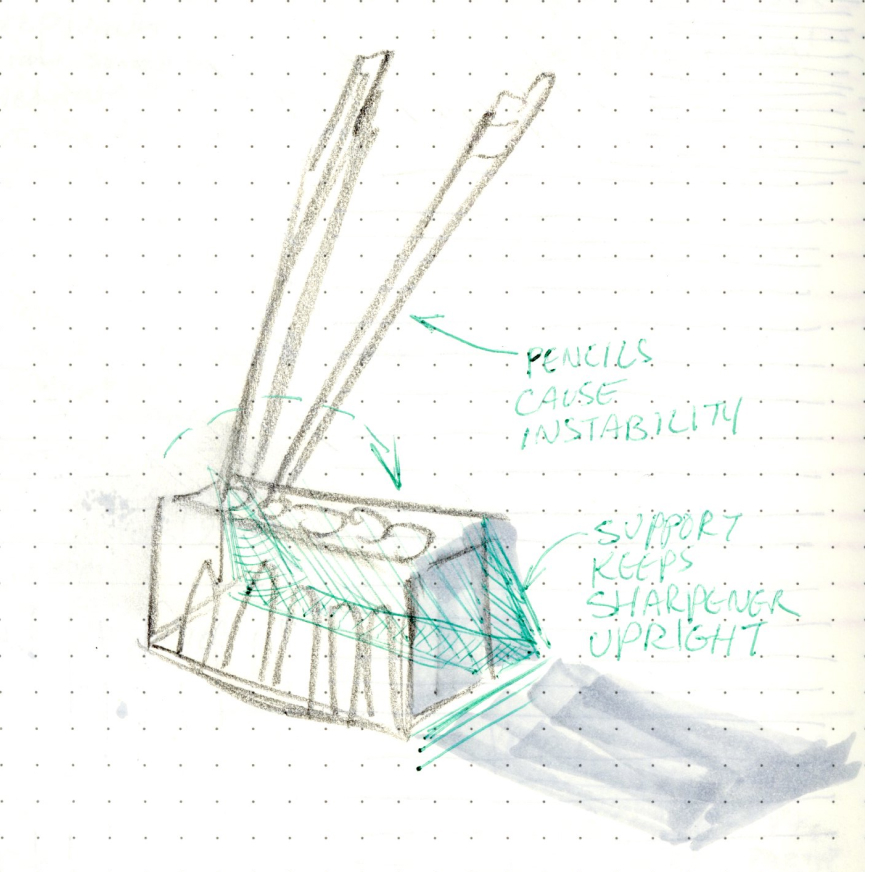 PENCILS
CAUSE
INSTABILITY
SUPPORT
KEEPS
SHARPENER
UPRIGHT